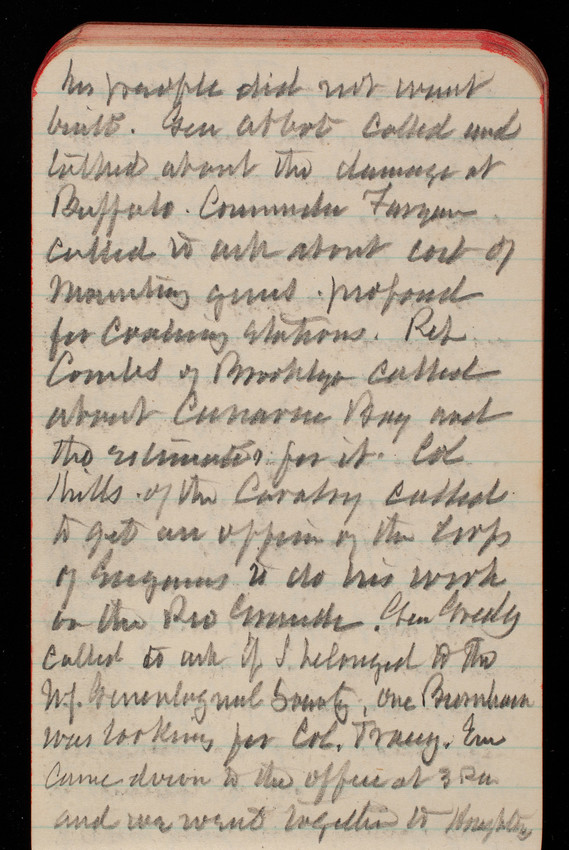 his people did not want
built. Gen Abbot called and
talked about the damage at
Buffalo. Commander Farqua
called to ask about cost of
mounting guns proposed
for Coaling Stations. Rep
Combs of Brooklyn called
about Canarsie Bay and
the estimates for it. Col
Mills of the Cavalry called
to get an officer of the Corps
of Engineers to do his work
on the Rio Grande. Gen Greely
called to ask if I belonged to the
N.Y. Genealogical Society, one Burnham
was looking for Col. Tracey. Em
came down to the office at 3 PM
and we went together to